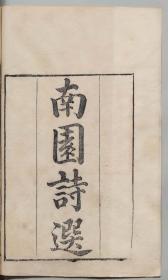 南園詩選